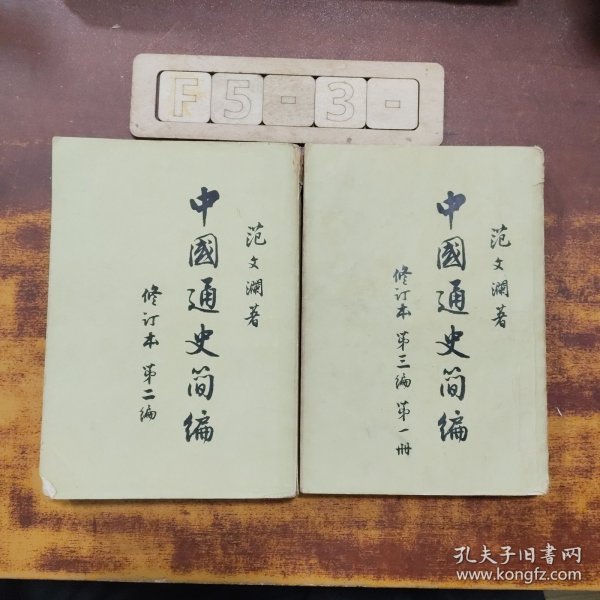 F5-3-
范文瀾著
中國通史简编
修订本 第二编
范文瀾著
中國通史简编
修订本 第三编 第一册
孔夫子旧书网
www.kongfz.com